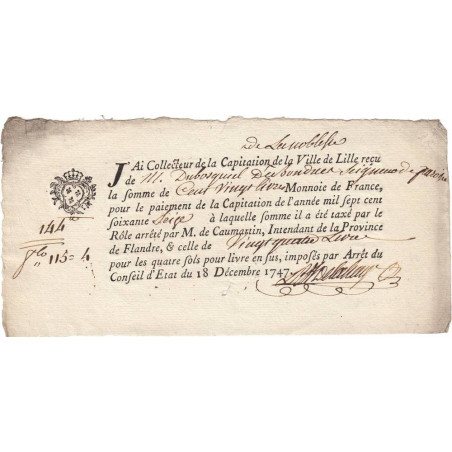 de La noblesse
J'Ai Collecteur de la Capitation de la Ville de Lille reçu
de M. Dubosquiel Desbondues Seigneur de
la somme de Cent vingt livres Monnoie de France,
pour le paiement de la Capitation de l'année mil sept cent
soixante Seize à laquelle somme il a été taxé par le
Rôle arrêté par M. de Caumartin, Intendant de la Province
de Flandre, & celle de Vingt quatre Livres
pour les quatre sols pour livre en sus, imposés par Arrêt du
Conseil d'Etat du 18 Décembre 1747.
144
115 = 4